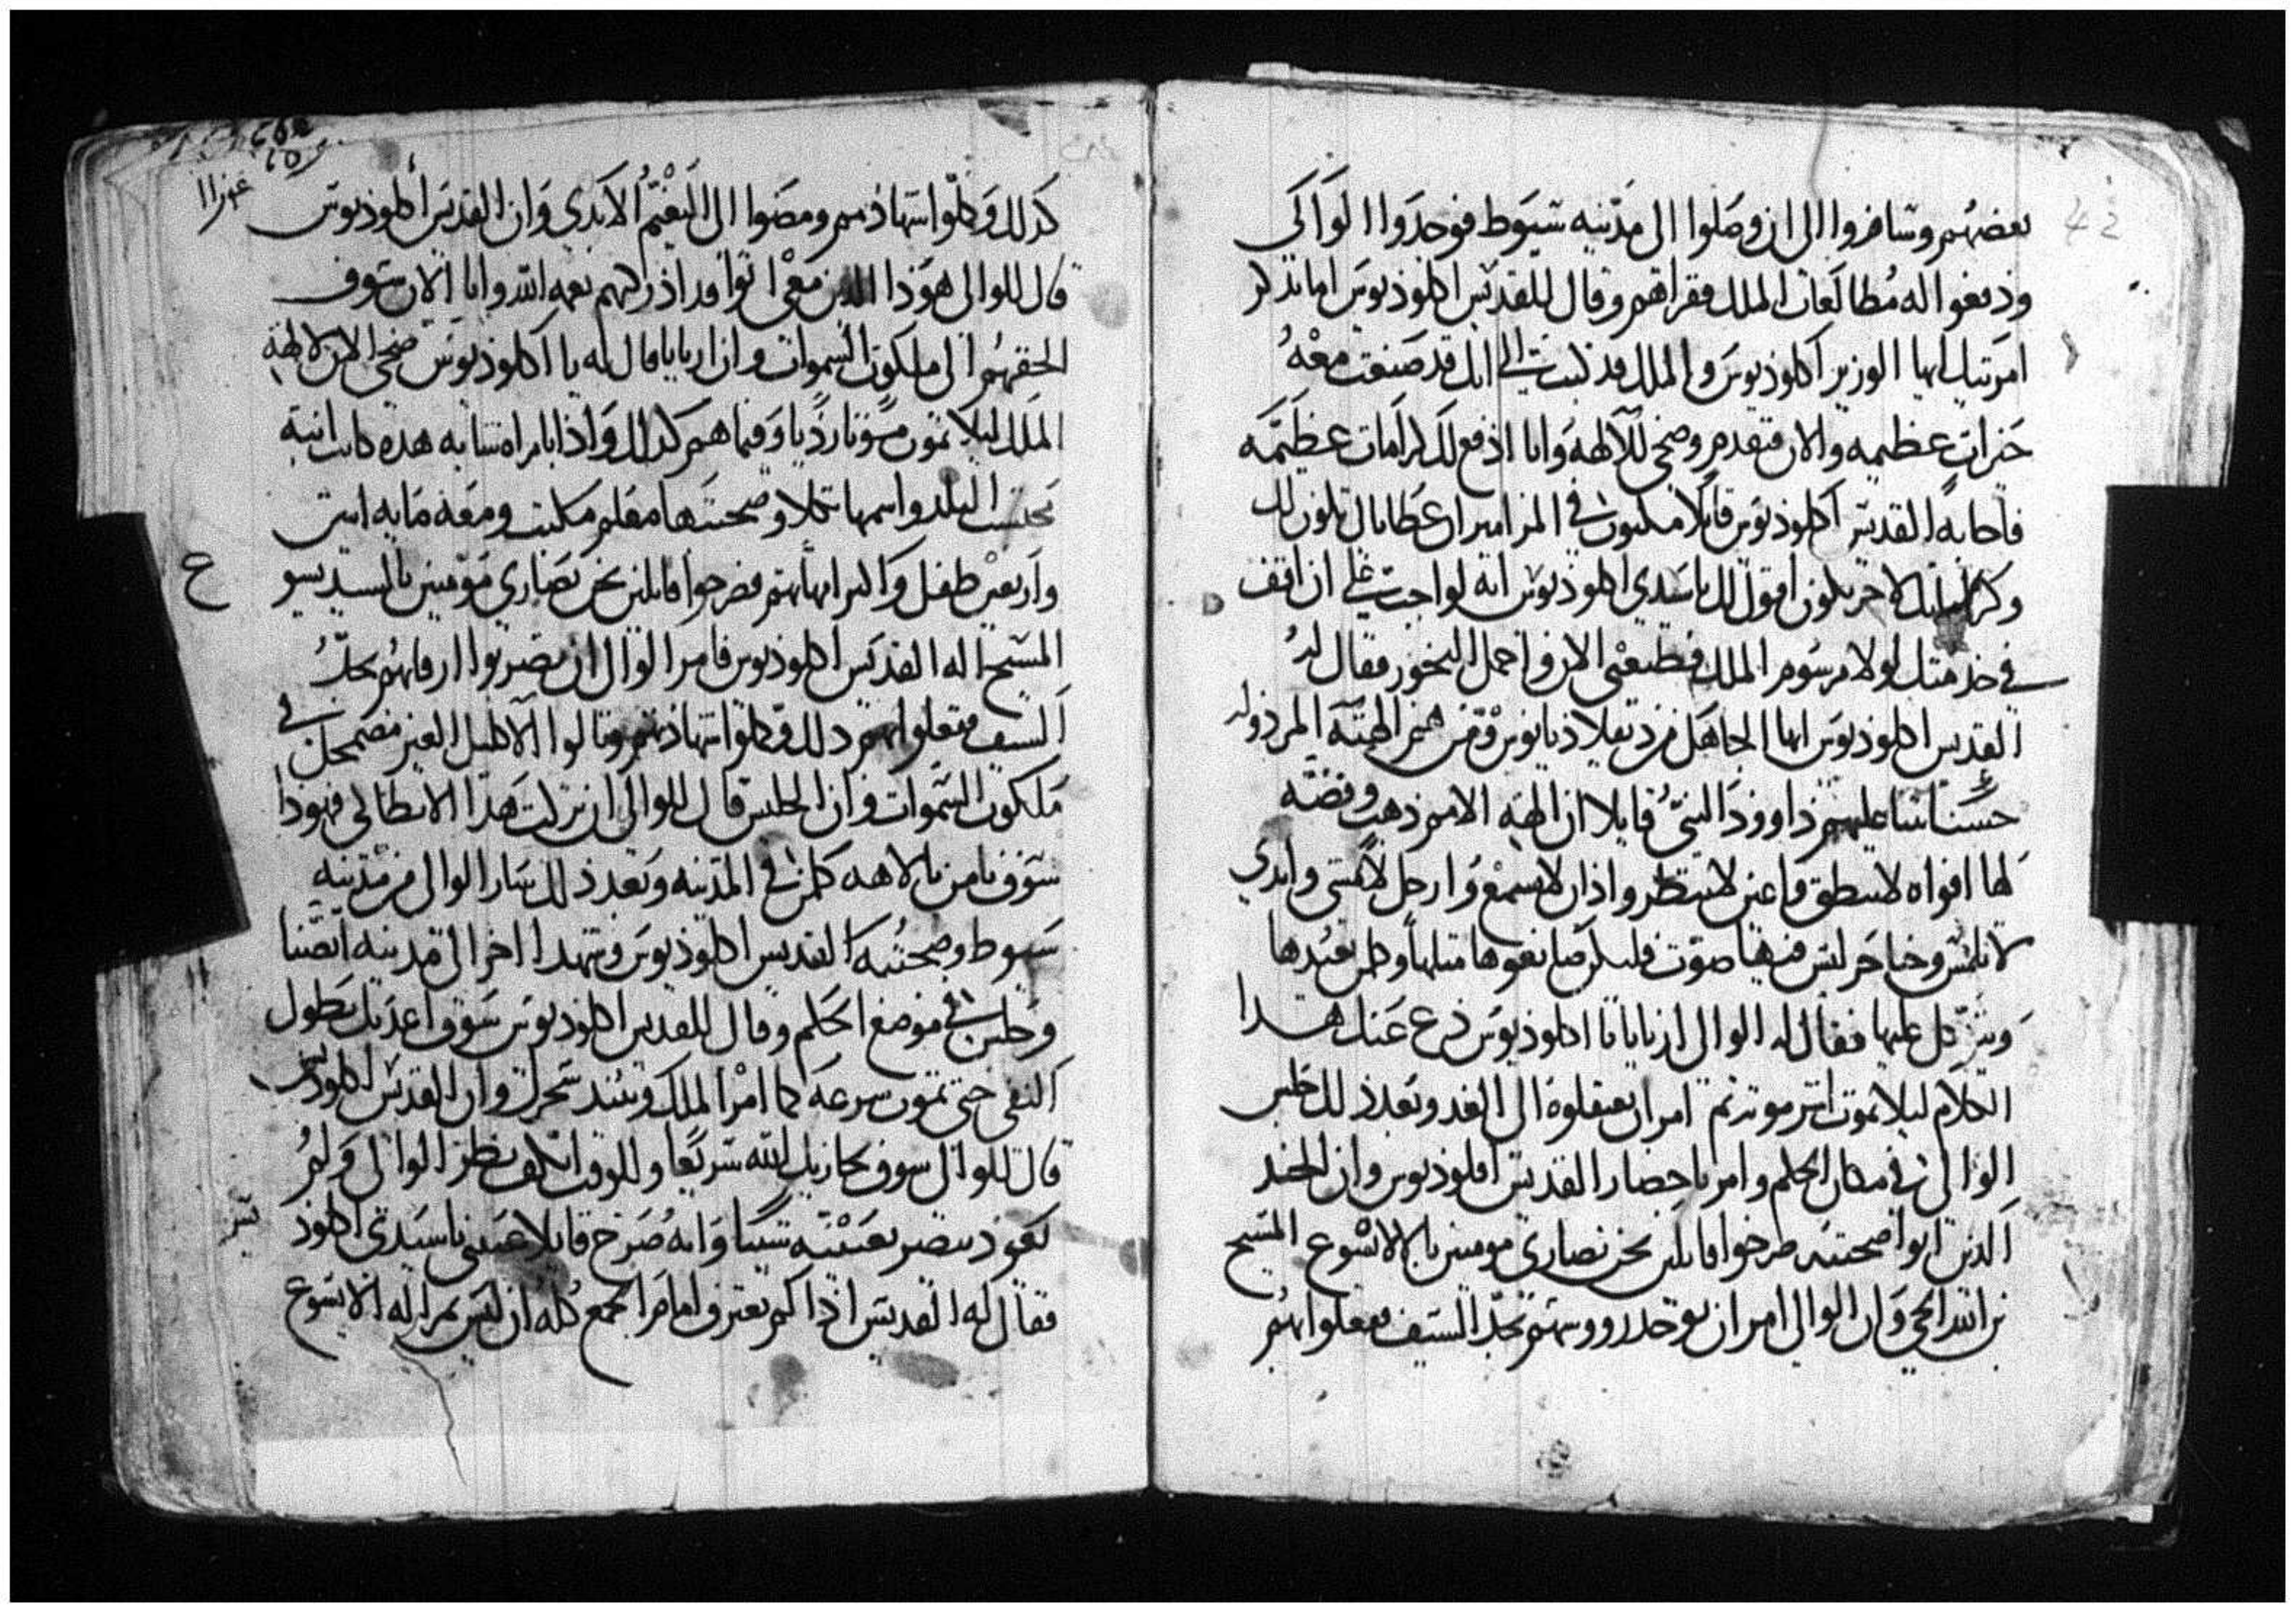 بعضهم وسافروا الى ان وصلوا الى مدينه سيوط فوجدوا الوالي
ودفعوا له مطالعات الملك فقراهم وقال للقديس اكلوديوس اما تذكر
ايها الوزير اكلوديوس والملك قد كتب الي انك قد صنعت معه
خيرات عظيمه والان فتقدم وضحي للآلهة وانا ادفع لك كرامات عظيمه
فاجابه القديس اكلوديوس قايلا مكتوب في المزامير ان عطاياك تكون لك
وكرامتك لاخر تكون اقول لك يا سيدي اكلوديوس انه لواجب علي ان اقف
في خدمتك لولا مرسوم الملك فطيعني الان واحمل البخور فقال له
القديس اكلوديوس ايها الجاهل من هم الهته المرذوله
حسنا علمهم داوود النبي قايلا ان الهة الامم ذهب وفضه
لها افواه لا تنطق واعين لا تنظر واذان لا تسمع وارجل لا تمشي وايدي
لا تلمس وحناجر ليس فيها صوت فليكن صانعوها مثلها وكلمن يعبدها
ويتكل عليها فقال له الوالي اريانا يا اكلوديوس دع عنك هدا
الكلام ليلا تموت اشر موته ثم امر ان يعتقلوه الى الغد وبعد ذلك جلس
الوالي في مكان الحكم وامر باحضار القديس اقلوديوس وان الجند
الذين اتوا صحبته صرخوا قايلين نحن نصارى مومنين بالاله يسوع المسيح
بن الله الحي وان الوالي امر ان توخد رووسهم بحد السيف ففعلوا بهم
كدلك وكملوا شهادتهم ومضوا الى النعيم الابدي وان القديس أكلوديوس
قال للوالي هودا الدين معي اتوا قد ادركتهم نعمه الله وانا الان سوف
الحقهم الى ملكوت السموات وان اريانا قال له يا اكلوديوس ضحي الان لالهة
الملك ليلا تموت موتا رديا وفيما هم كدلك واذا بامراه شابه هده كانت ابنة
البلد واسمها تكلا وصحبتها معلم مكتب ومعه مايه اثنين
واربعين طفل واكثر امهاتهم فصرخوا قايلين نحن نصارى مومنين بالسيد يسوع
المسيح اله القديس اكلوديوس فامر الوالي ان يضربوا ارقابهم بحد
السيف ففعلوا بهم دلك وكملوا شهادتهم ونالوا الاكليل الغير مضمحل في
ملكوت السموات وان الجلس قال للوالي ان تركت هدا الانطاكي فهودا
سوف يامن بالاهه كلمن في المدينه وبعد ذلك سار الوالي من مدينه
سيوط وصحبته القديس اكلوديوس وشهدا اخر الى مدينه انصنا
وجلس في موضع الحكم وقال للقديس اكلوديوس سوف اعذبك بطول
النفي حتى تموت سرعه كما امر الملك وان القديس اكلوديوس
قال للوالي سوف يجازيك الله سريعا وللوقت انكف نظر الوالي ولم
يعود يبصر بعينيه شيئا وانه صرخ قايلا اعيني يا سيدي اكلود
فقال له القديس اذا لم تعترف امام الجمع كله ان ليس تم اله الا يسوع